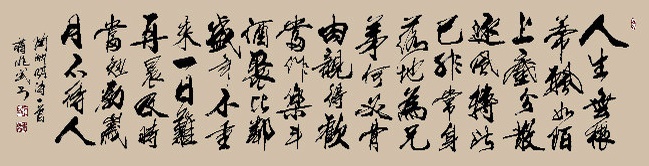 人生無根
蒂飄如陌
上塵分散
逐風轉此
已非常身
落地為兄
弟何必骨
肉親得歡
當作樂斗
酒聚比鄰
盛年不重
來一日難
再晨及時
當勉勵歲
月不待人
陶淵明詩一首